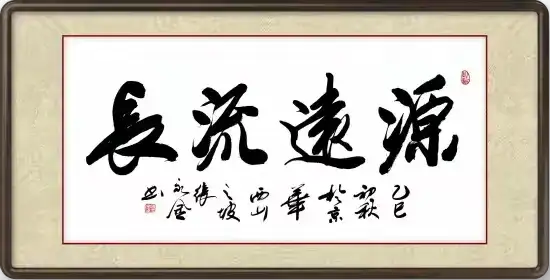 源遠流長
乙巳初秋於京華西山之坡張永金书